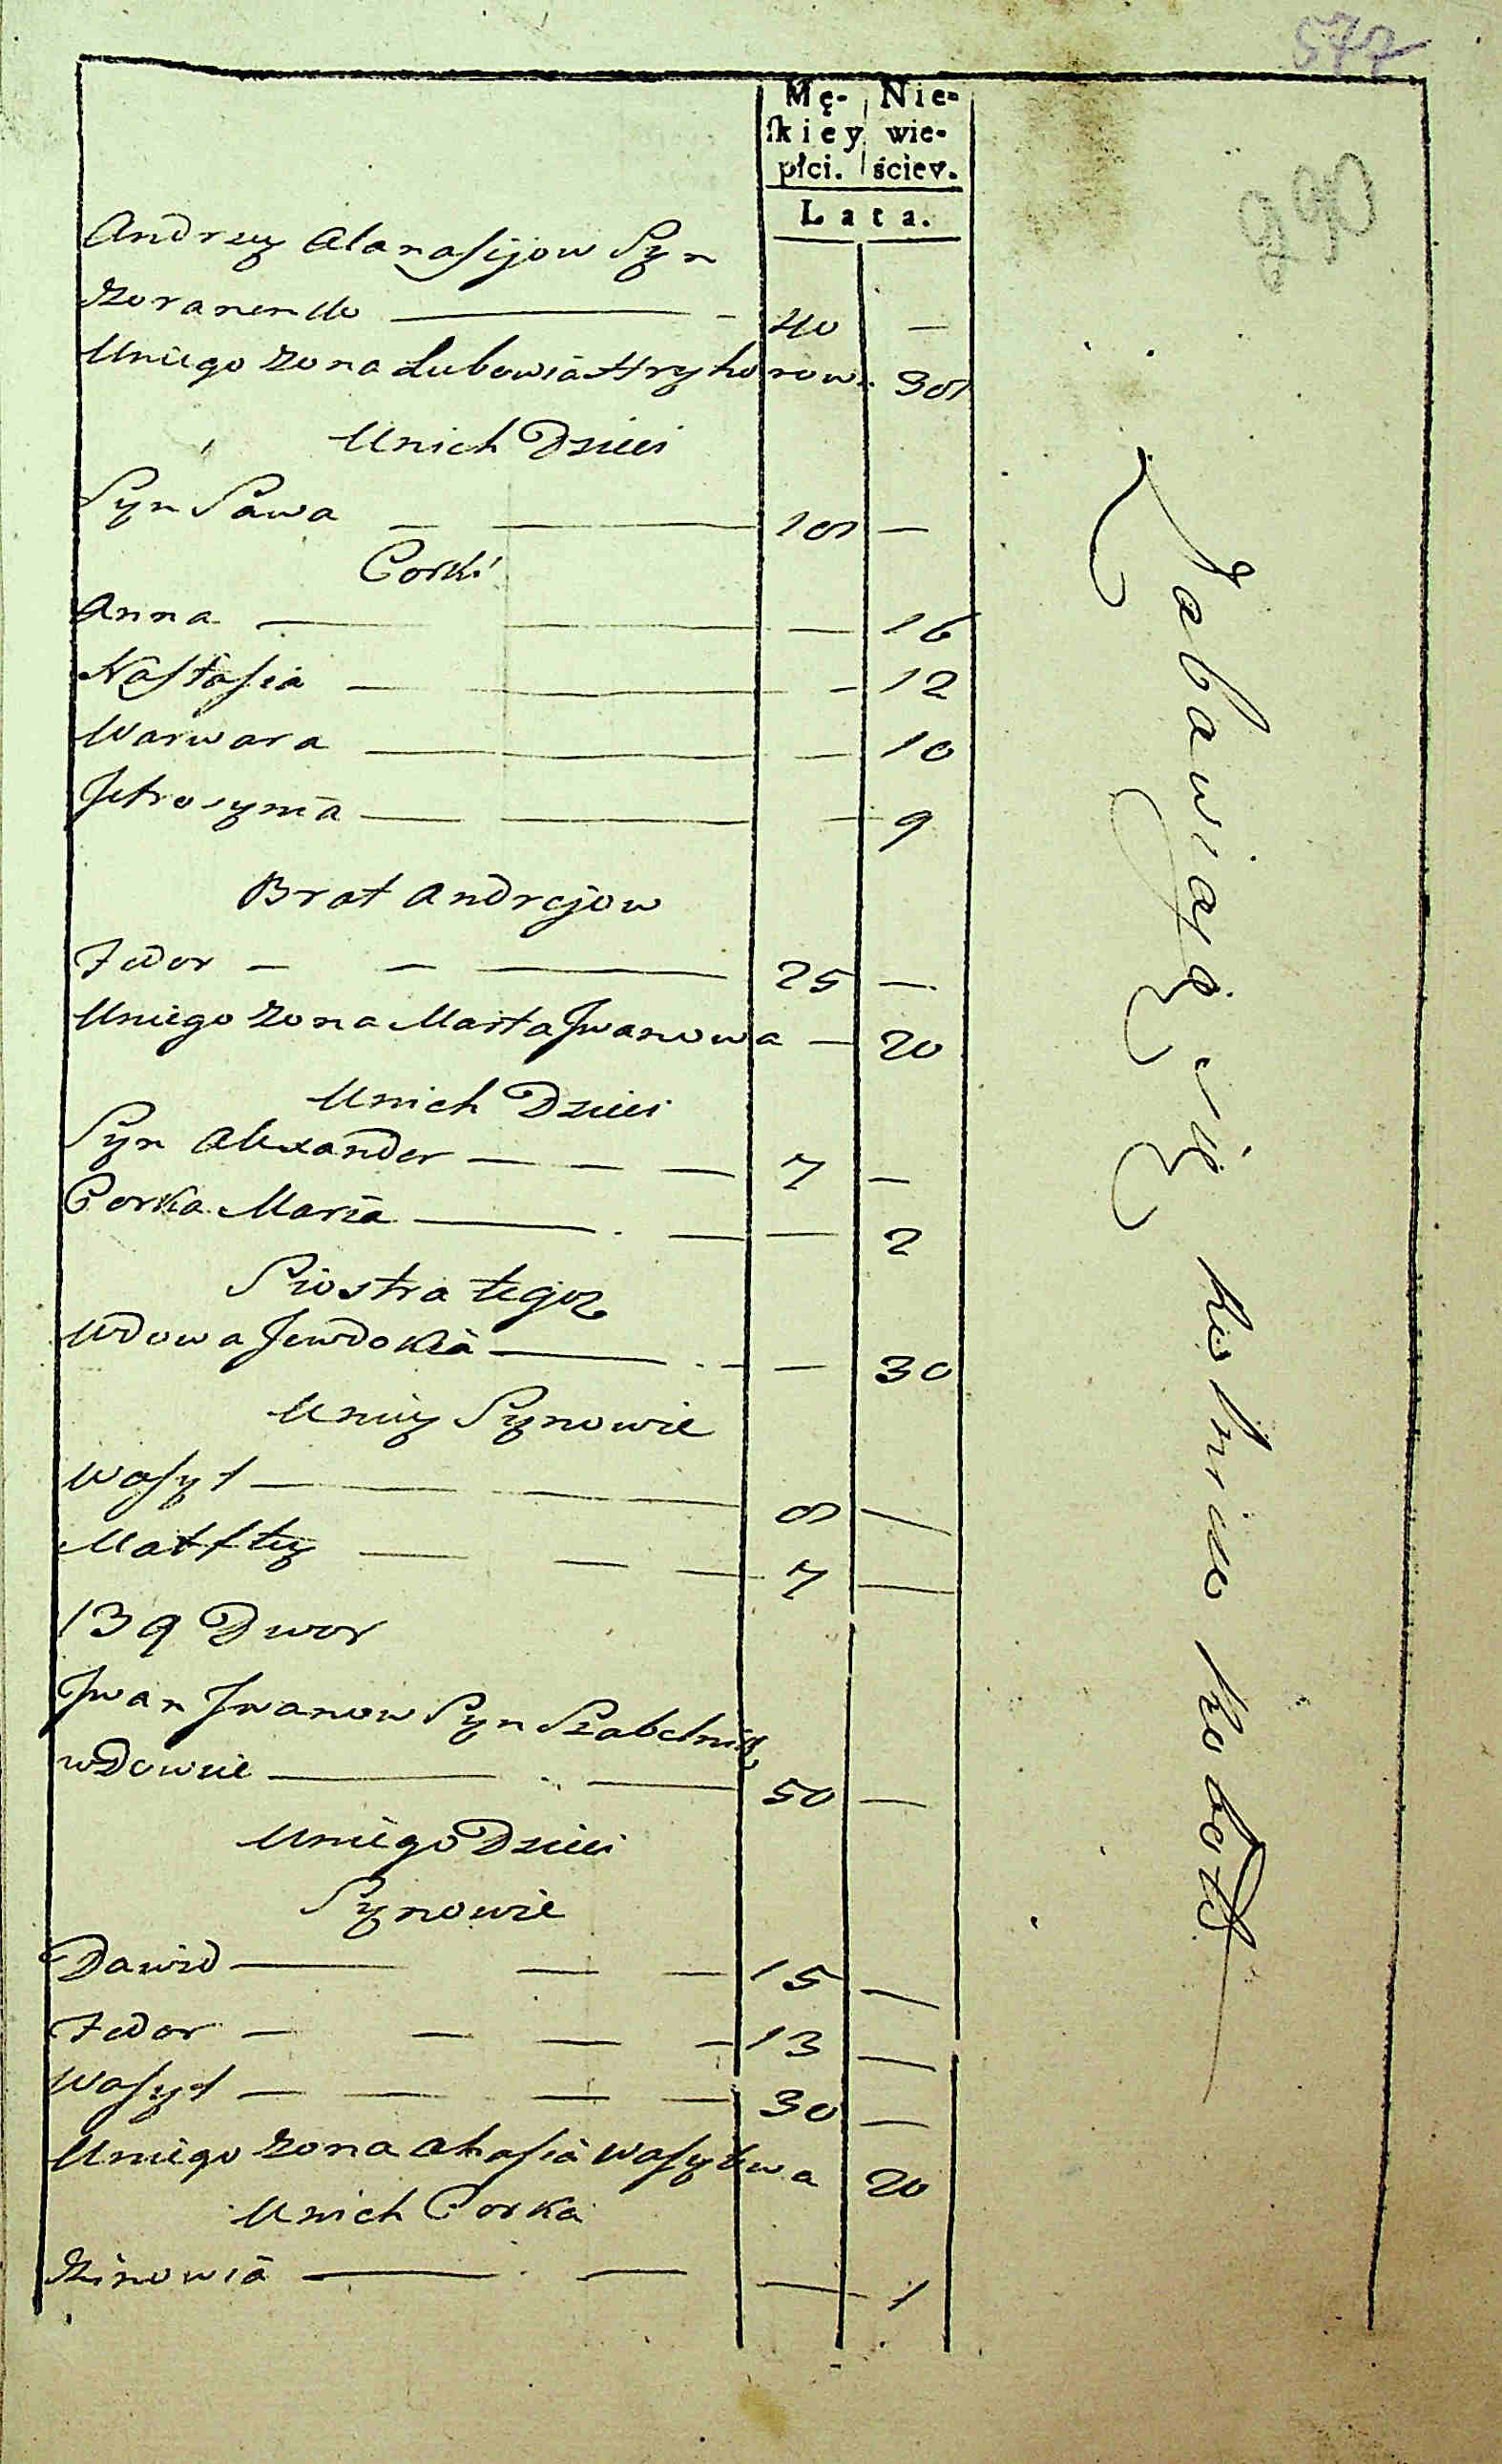 577
290
Mę- Nie-
skiey wie-
płci. ściey.
Lata.
Andrzey Atanasijow Syn
40 —
Uniego zona Lubowia Hryhorow. 38
Unich Dzieci
Syn Sawa — 18 —
Corki
Anna — 16
Nastasia — 12
Warwara — 10
Jefrosynia — 9
Brat Andrejow
Fedor — 25 —
Uniego zona Marta Jwanowa — 20
Unich Dzieci
Syn Alexander — 7 —
Corka Maria — 2
Siostra tegoz
Wdowa Jewdokia — 30
Uniey Synowie
Wasyl — 8 —
Matfiey — 7 —
139 Dwor
Jwan Jwanow Syn Szabelnik
wdowiec — 50 —
Uniego Dzieci
Synowie
Dawid — 15 —
Fedor — 13 —
Wasyl — 30 —
Uniego zona Ahafia Wasylowa 20
Unich Corka
Zinowia — 1
Zabawiaią się rolnico robotą